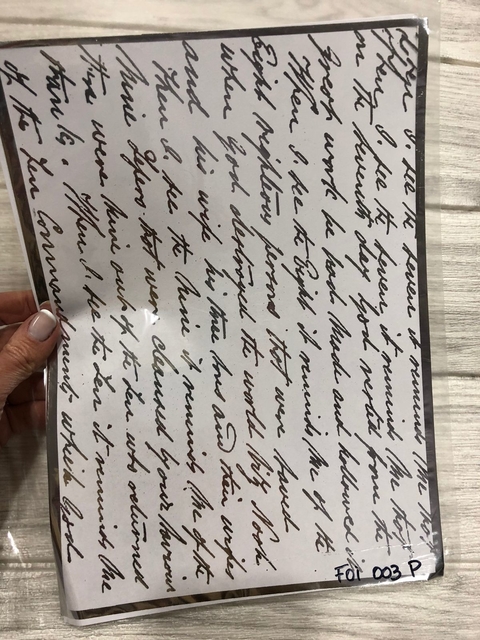 I see the seven it reminds Me that
When I see the seven, it reminds Me that
on the Seventh day God rested from the
Great work he had Made and hallowed it
When I see the Eight it reminds Me of the
Eight righteous persons that were saved
when God destroyed the world Viz. Noah
and his wife his three sons and their wifes
When I see the Nine it reminds Me of the
Nine Lepers that were cleansed by our Saviour
there were nine out of the ten who returned
thanks. When I see the Ten it reminds Me
of the Ten Commandments which God
FOI 003 P